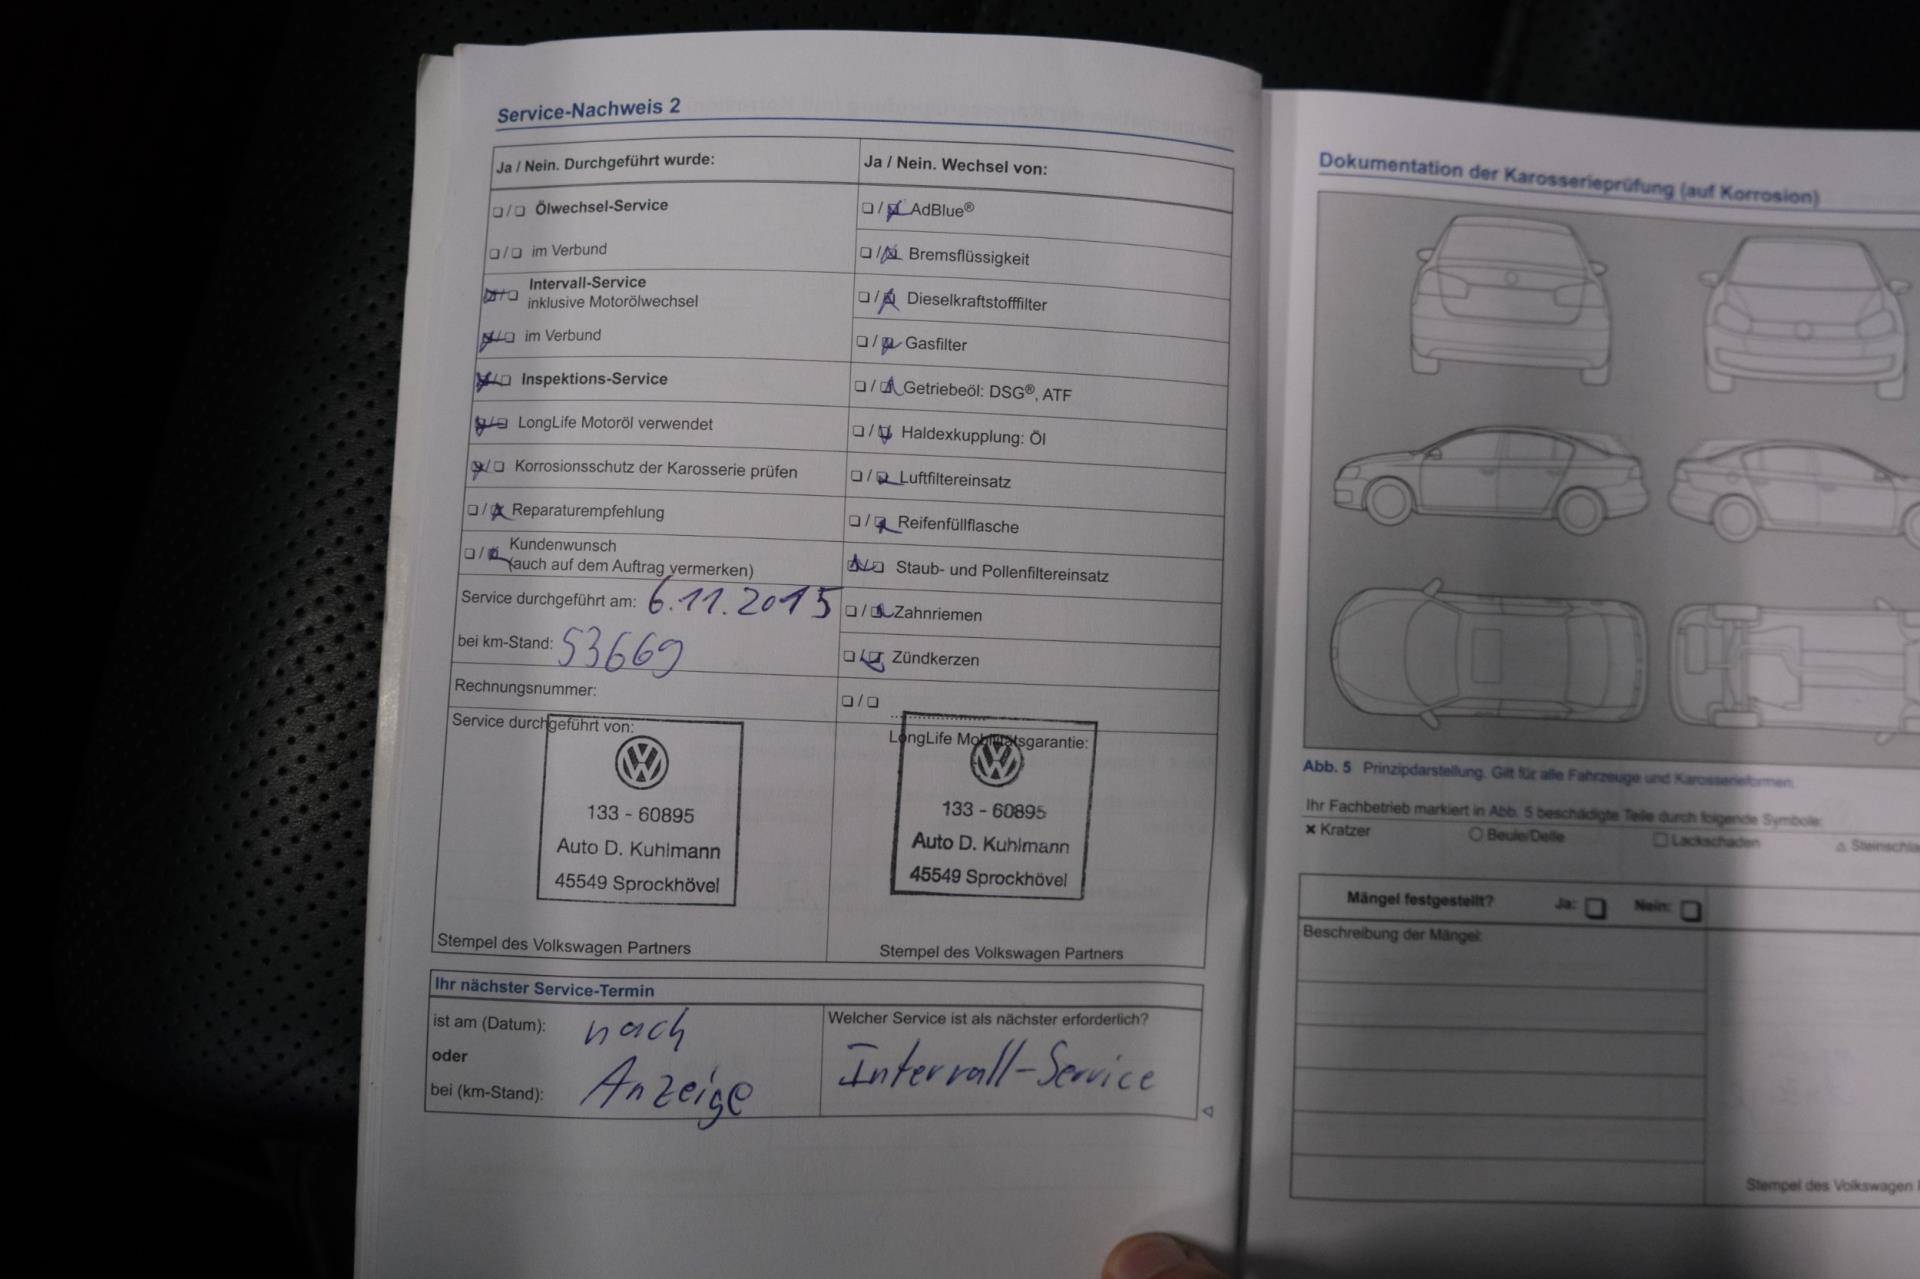 Service-Nachweis 2
Ja / Nein. Durchgeführt wurde:
❏ / ❏ Ölwechsel-Service
❏ / ❏ im Verbund
❏ / ❏ Intervall-Service
inklusive Motorölwechsel
❏ / ❏ im Verbund
❏ / ❏ Inspektions-Service
❏ / ❏ LongLife Motoröl verwendet
❏ / ❏ Korrosionsschutz der Karosserie prüfen
❏ / ❏ Reparaturempfehlung
❏ / ❏ Kundenwunsch
(auch auf dem Auftrag vermerken)
Service durchgeführt am: 6.11.2015
bei km-Stand: 53669
Rechnungsnummer:
Ja / Nein. Wechsel von:
❏ / ❏ AdBlue®
❏ / ❏ Bremsflüssigkeit
❏ / ❏ Dieselkraftstofffilter
❏ / ❏ Gasfilter
❏ / ❏ Getriebeöl: DSG®, ATF
❏ / ❏ Haldexkupplung: Öl
❏ / ❏ Luftfiltereinsatz
❏ / ❏ Reifenfüllflasche
❏ / ❏ Staub- und Pollenfiltereinsatz
❏ / ❏ Zahnriemen
❏ / ❏ Zündkerzen
❏ / ❏
Service durchgeführt von:
133 - 60895
Auto D. Kuhlmann
45549 Sprockhövel
Stempel des Volkswagen Partners
LongLife Mobilitätsgarantie:
133 - 60895
Auto D. Kuhlmann
45549 Sprockhövel
Stempel des Volkswagen Partners
Ihr nächster Service-Termin
ist am (Datum): nach
oder
bei (km-Stand): Anzeige
Welcher Service ist als nächster erforderlich?
Intervall-Service
Dokumentation der Karosserieprüfung (auf Korrosion)
Abb. 5 Prinzipdarstellung. Gilt für alle Fahrzeuge und Karosserieformen.
Ihr Fachbetrieb markiert in Abb. 5 beschädigte Teile durch folgende Symbole:
✕ Kratzer ○ Beule/Delle □ Lackschaden △ Steinschla
Mängel festgestellt? Ja: ❏ Nein: ❏
Beschreibung der Mängel:
Stempel des Volkswagen